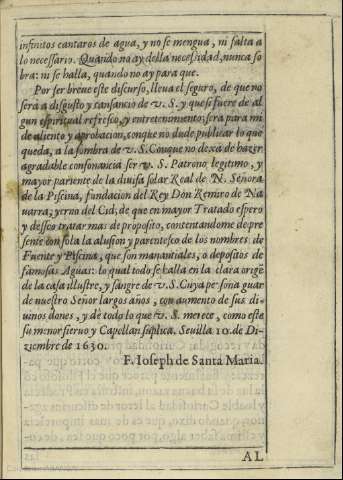 infinitos cantaros de agua, y no se mengua, ni falta a
lo necessario. Quando no ay della necessidad, nunca so
bra: ni se halla, quando no ay para que.
Por ser breue este discurso, lleua el seguro, de que no
sera a disgusto y cansancio de v. S. y que si fuere de al
gun espiritual refresco, y entretenimiento; sera para mi
de aliento y aprobacion, con que no dude publicar lo que
queda, a la sombra de v. S. Con que no dexa de hazer
agradable consonancia ser v. S. Patrono legitimo, y
mayor pariente de la diuisa solar Real de N. Señora
de la Piscina, fundacion del Rey Don Remiro de Na
uarra, yerno del Cid, de que en mayor Tratado espero
y desseo tratar mas de proposito, contentandome de pre
sente con sola la alusion y parentesco de los nombres de
Fuente y Piscina, que son manantiales, o depositos de
famosas Aguas: lo qual todo se halla en la clara origē
de la casa illustre, y sangre de v. S. Cuya persona guar
de nuestro Señor largos años, con aumento de sus di
uinos dones, y de todo lo que v. S. merece, como este
su menor sieruo y Capellan suplica. Seuilla 10. de Di-
ziembre de 1630.
F. Ioseph de Santa Maria.
AL